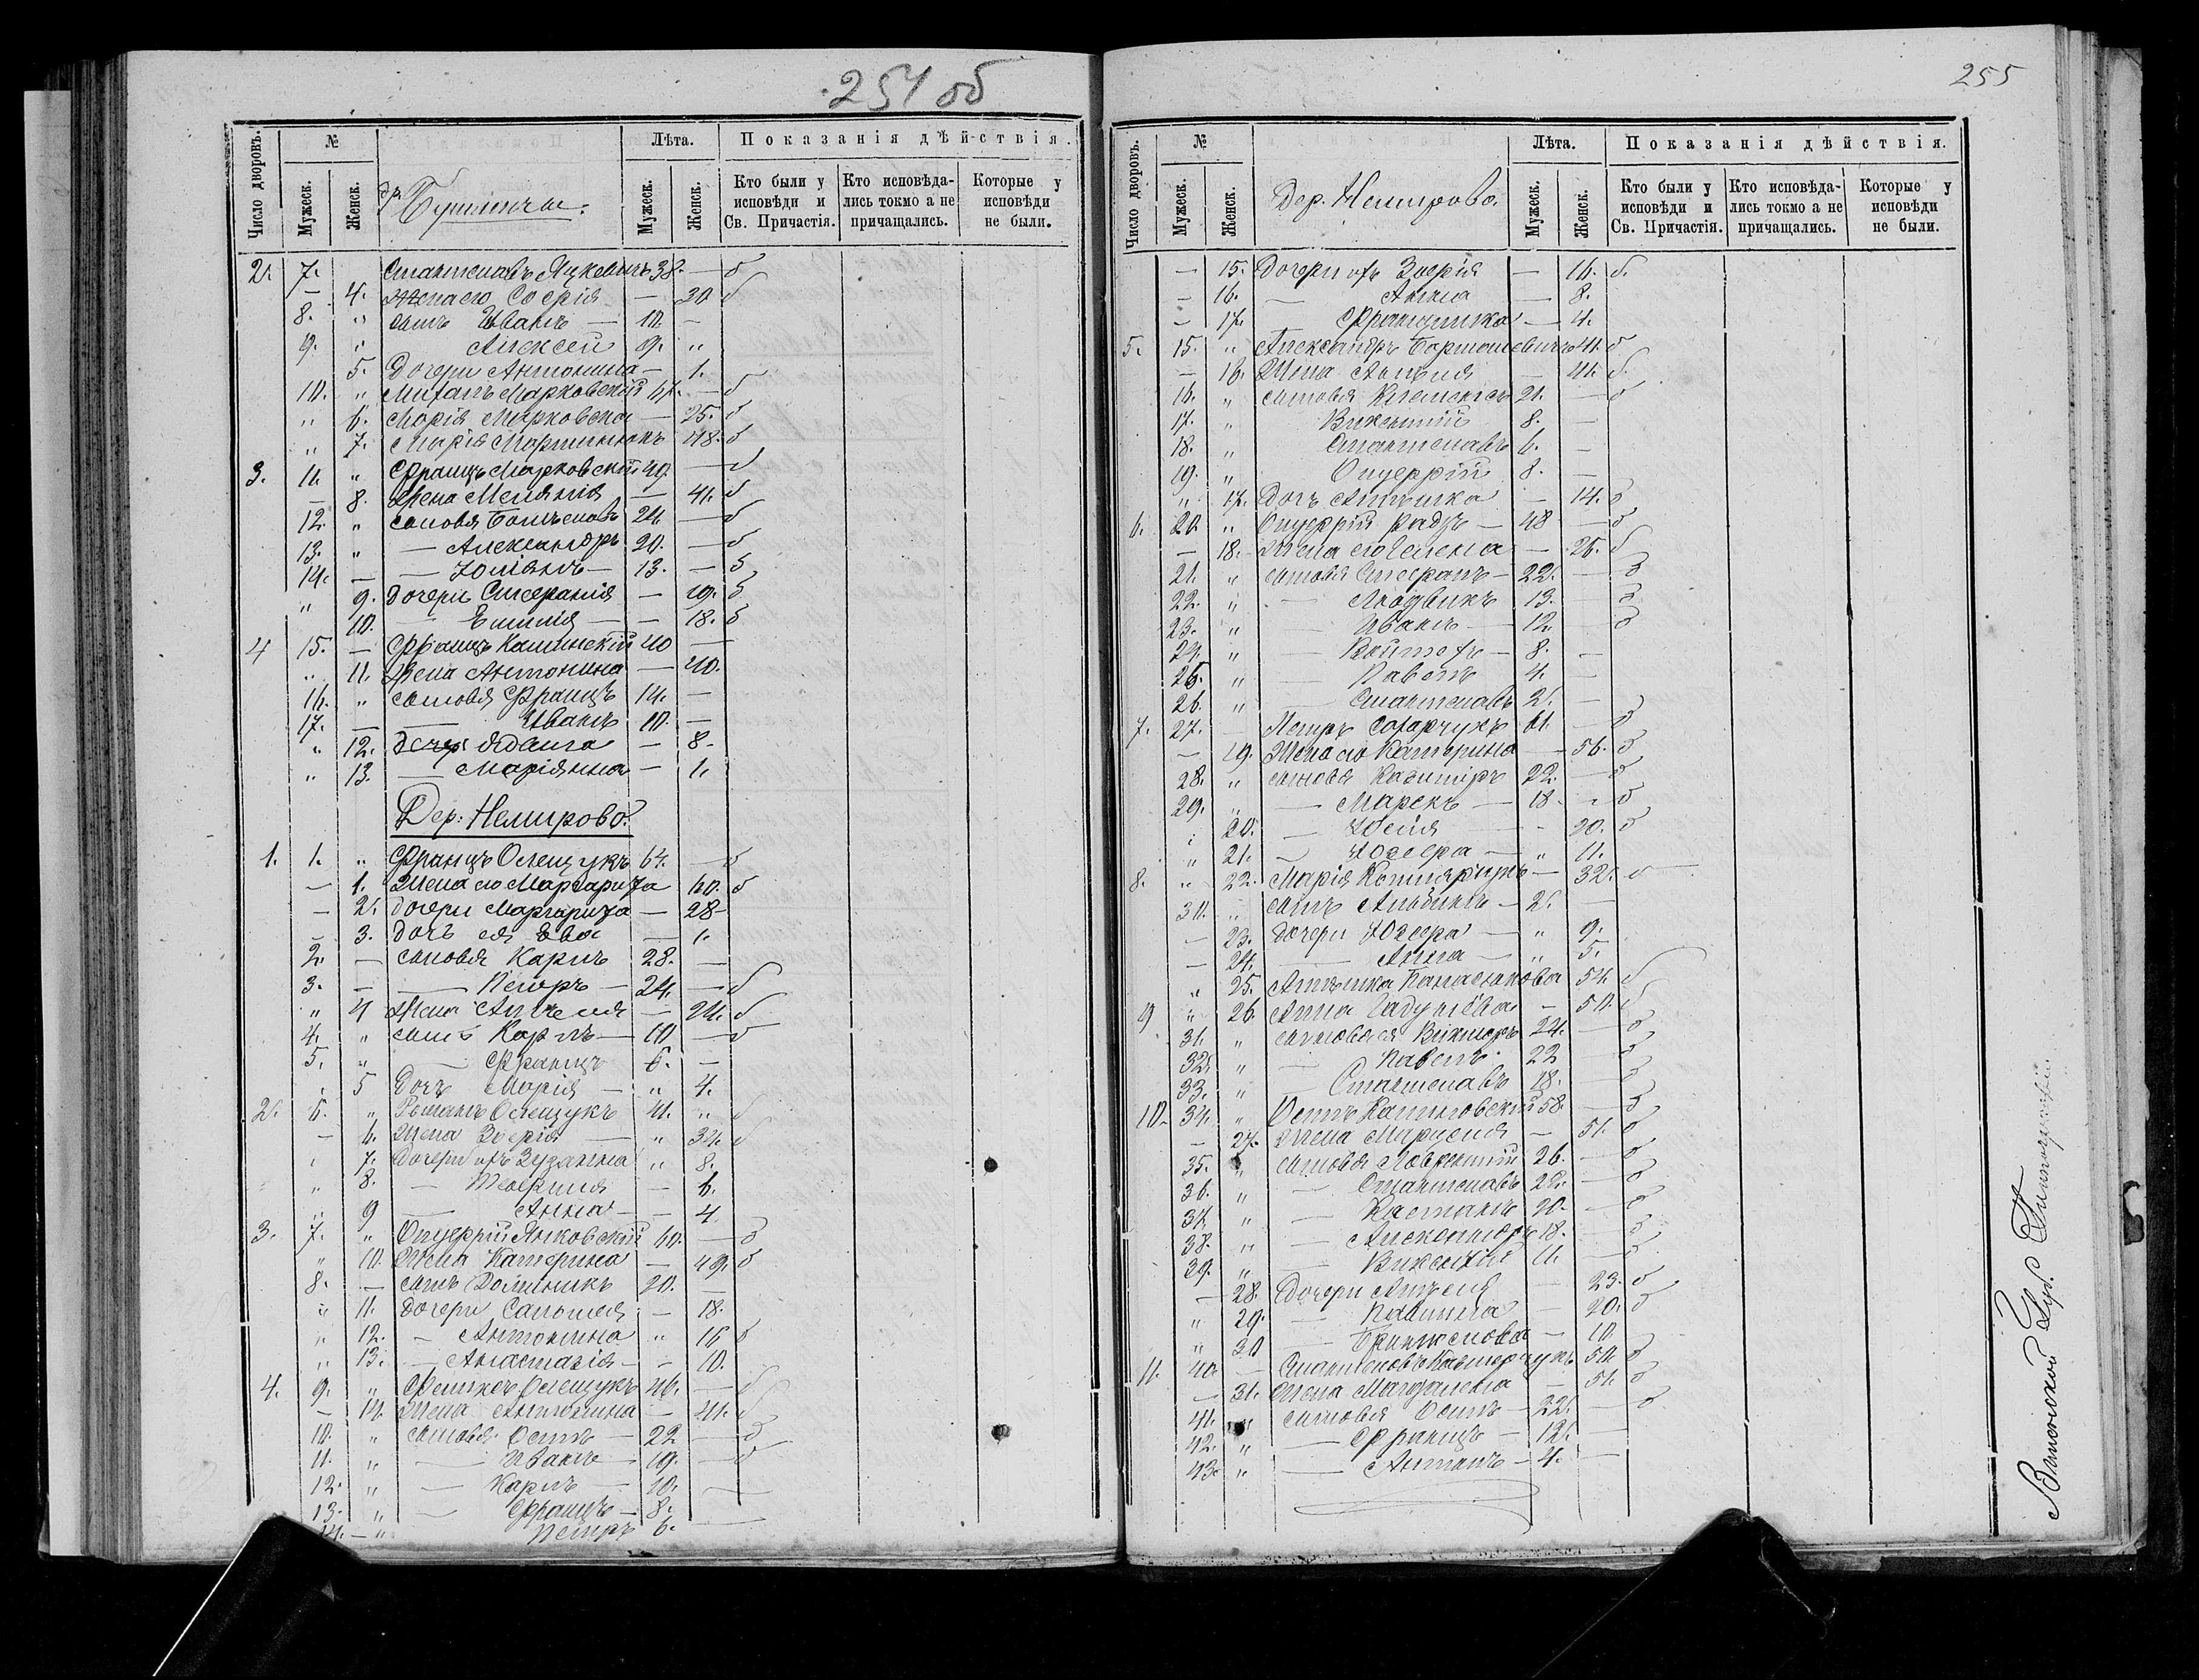 254 об
Число дворовъ. № Лѣта. Показанія дѣйствія.
Мужеск. Женск. Мужеск. Женск. Кто были у исповѣди и Св. Причастія. Кто исповѣда-лись токмо а не причащались. Которые у исповѣди не были.
2. 7. Станиславъ 38. — б
— 4. Жена его Софія — 30 б
8. " сынъ Иванъ — 10. —
9. " Алексей 9. "
5. Дочери Антонина — 1.
10. " Марковскій — б
" 6. Марія Марковска — 25. б
" 7. Марія Мартынюкъ 48. б
3. 11. " Францъ Марковскій 49. — б
— 8. Жена Меланія — 41. б
12. " сыновья Болеславъ 24. — б
13. " — Александръ 20. — б
14. — — Юліанъ — 13. — б
" 9. дочери Стефанія — 19. б
10. — Емилія — — 18. б
4 15. — Францъ Калинскій 40 —
" 11. Жена Антонина — 40.
16. " сыновья Францъ 14. —
17. — — Иванъ 10. —
" 12. дочер Ядвига — 8.
" 13. — Маріянна — 1.
Дер: Немирово.
1. 1. " Францъ Олещукъ 64. — б
— 1. Жена его Маргарита 60. б
— 2. дочери Маргарита — 28
— 3. дочь ея Ева — 1.
2. — сыновья Карлъ 28. —
3. — — Петръ — 24. — б
" 4 Жена Анѣеля — 24. б
4. " сынъ Карлъ — 10 — б
5. " — Францъ 6. —
5 Дочь Марія — " 4.
2. 6. " Романъ Олещукъ 41. " б
— 6. Жена Зофія — " 34. б
7. Дочери ихъ Зузанна " 8.
" 8. — Теофиля — 6.
" 9 — Анна — — 4
3. 7. " Онуфрій Янковскій 60. — б
" 10. Жена Катерина — 49. б
8. — сынъ Доминикъ 20. —
" 11. дочери Саломея — 18.
" 12. — Антонина " 16 б
" 13. — Анастазія — — 10.
4. 9. " Феликсъ Олещукъ 46. — б
— 14. Жена Антонина — 41. б
10. " сыновья Осипъ — 22 — б
11. " — Иванъ — 19. — б
12. " — Карлъ — 10. —
13. " — Францъ — 8. —
14. — " Петръ 6. —
255
Число дворовъ. № Лѣта. Показанія дѣйствія.
Мужеск. Женск. Дер. Немирово. Мужеск. Женск. Кто были у исповѣди и Св. Причастія. Кто исповѣда-лись токмо а не причащались. Которые у исповѣди не были.
— 15. Дочери ихъ Зофія — 16. б.
— 16. — Анна — 8.
— 17. — Францишка — 4.
5. 15. " Александръ Бартошевичъ 41. б
— 16. Жена Анѣеля — 41. б.
16. " сыновья Клеменсъ 21. — б
17. " Викентій 8. —
18. " Станиславъ 6. —
19. " Онуфрій 8. —
" 17. Дочь — 14. б
6. 20. " Онуфрій 48 — б
— 18. Жена его Елена — 26. б
21. " сыновья Стефанъ — 22. — б
22. " — Людвикъ 13. — б
23. " — Иванъ — 12. — б
24. " — Войтехъ — 8. —
25. " — Павелъ 4. —
26. " — Станиславъ 2. —
7. 27. — Петръ 61. — б
— 19. Жена его Катерина — 56. б
28. " сыновья Казимиръ 22. — б
29. " — Марекъ — 18 — б
20. — Юлія — 20. б
" 21. — Юзефа — " 11.
8. " 22. Марія — 32. б
30. " сынъ Альбинъ — 2. —
— 23. дочери Юзефа — " 9.
— 24. — Анна — " 5.
" 25. Панасюкова 54. б
9 " 26. Анна — 50. б
31. " сыновья ея Викторъ 24. — б
32. " — Павелъ 22 — б
33. " — Станиславъ 18. — б
10. 34. " Осипъ Калиновскій 58. — б
— 27. Жена Марцеля — 51. б
35. " сыновья Лаврентій 26. — б
36. " — Станиславъ 22. — б
37. " — Каетанъ 20. — б
38. " — Александръ 18. — б
39. " — Викентій 11. — б
— 28. Дочери Анѣеля — 23. б
" 29. — Павлина — 20. б
" 30 — Брониславa — 10
11. 40. — Станиславъ 50. б
— 31. Жена Магдалена — 51. б
41. " сыновья Осипъ — 22. — б
42. " — Францъ — 12. —
43. " — Антонъ — 4. —
Виленской Губ. Типографіи.